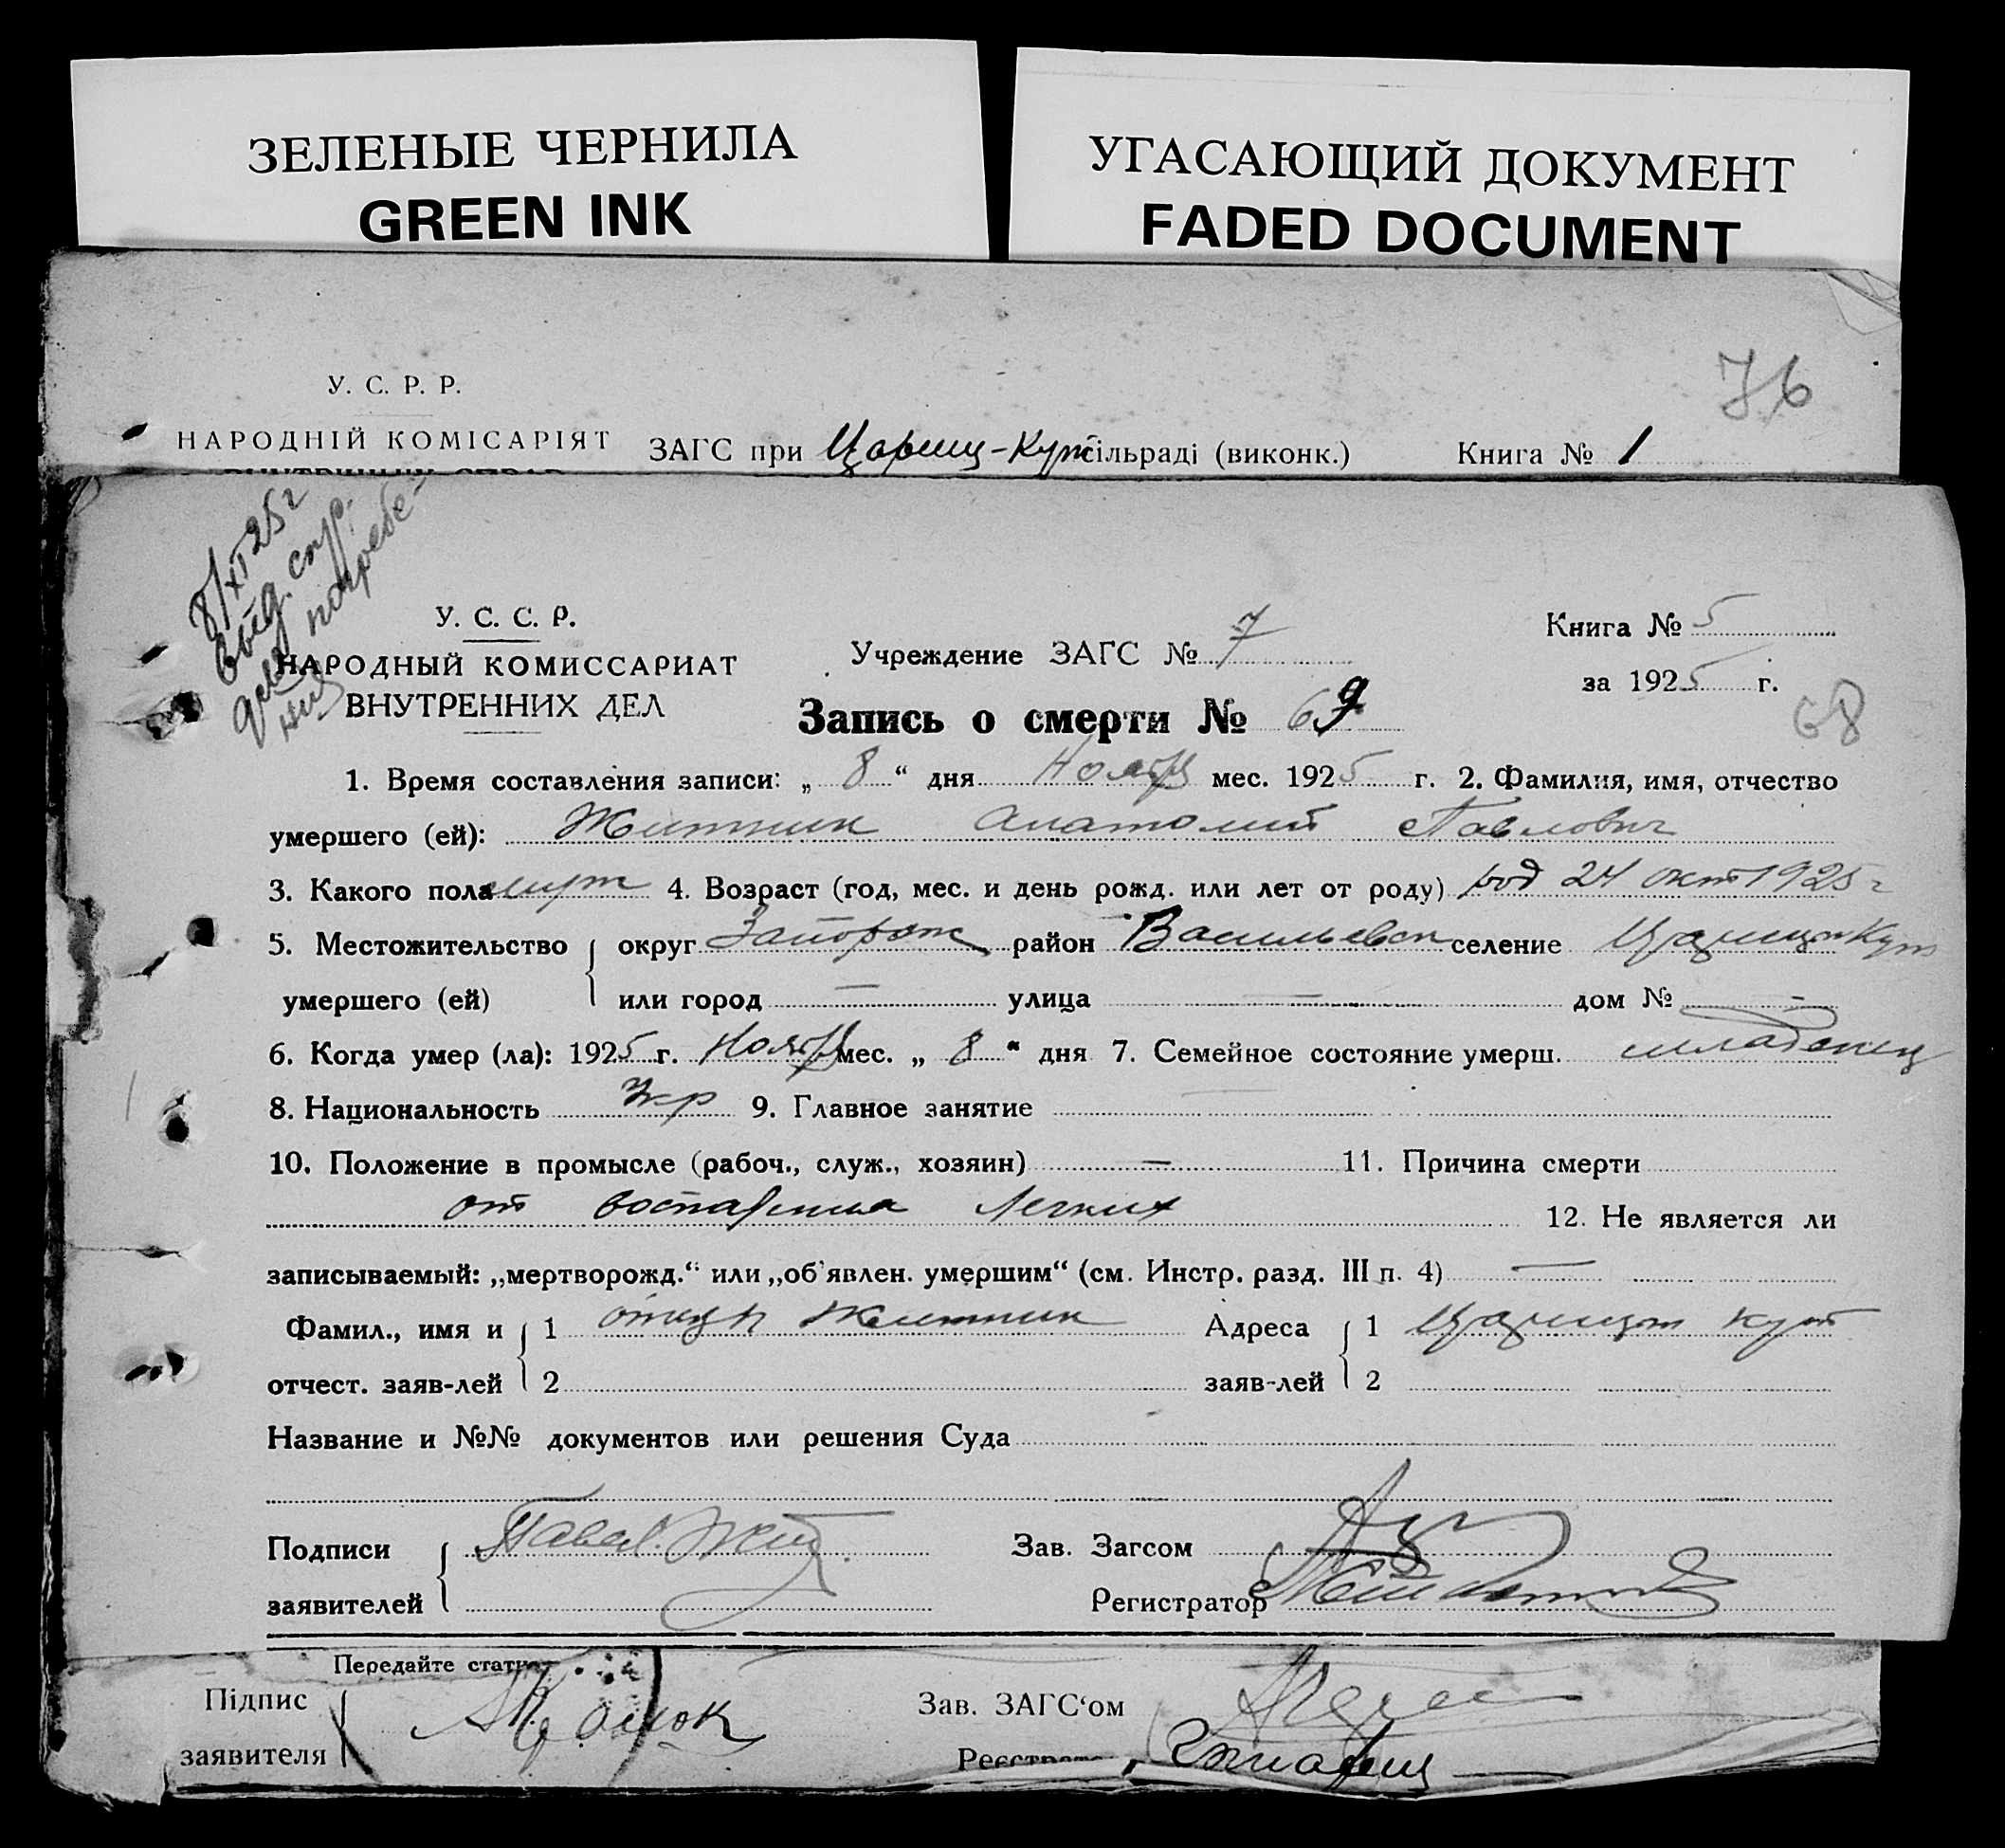 ЗЕЛЕНЫЕ ЧЕРНИЛА
GREEN INK
УГАСАЮЩИЙ ДОКУМЕНТ
FADED DOCUMENT
76
У. С. Р. Р.
НАРОДНІЙ КОМІСАРІЯТ
ЗАГС при Цариц-Кут сільраді (виконк.) Книга № 1
8/XI 25 г
выд. спр.
для погребе-
ния
У. С. С. Р.
НАРОДНЫЙ КОМИССАРИАТ
ВНУТРЕННИХ ДЕЛ
Учреждение ЗАГС № 7
Книга № 5
за 1925 г.
68
Запись о смерти № 69
1. Время составления записи: „ 8 “ дня Ноябр мес. 1925 г. 2. Фамилия, имя, отчество
умершего (ей): Житник Анатолий Павлович
3. Какого пола 4. Возраст (год, мес. и день рожд. или лет от роду) род 24 окт 1925 г
5. Местожительство округ Запорож район Васильевск селение Царицын Кут
умершего (ей) или город — улица — дом № -
6. Когда умер (ла): 1925 г. Ноябр мес. „ 8 “ дня 7. Семейное состояние умерш. младенец
8. Национальность Укр 9. Главное занятие
10. Положение в промысле (рабоч., служ., хозяин) — 11. Причина смерти
от воспаления Легких 12. Не является ли
записываемый: „мертворожд.“ или „об'явлен. умершим“ (см. Инстр. разд. III п. 4) —
Фамил., имя и 1 отец Житник Адреса 1 Царицын Кут
отчест. заяв-лей 2 заяв-лей 2
Название и №№ документов или решения Суда
Подписи Павел. Жит. Зав. Загсом
заявителей Регистратор
Передайте
Підпис
заявителя
Зав. ЗАГС'ом